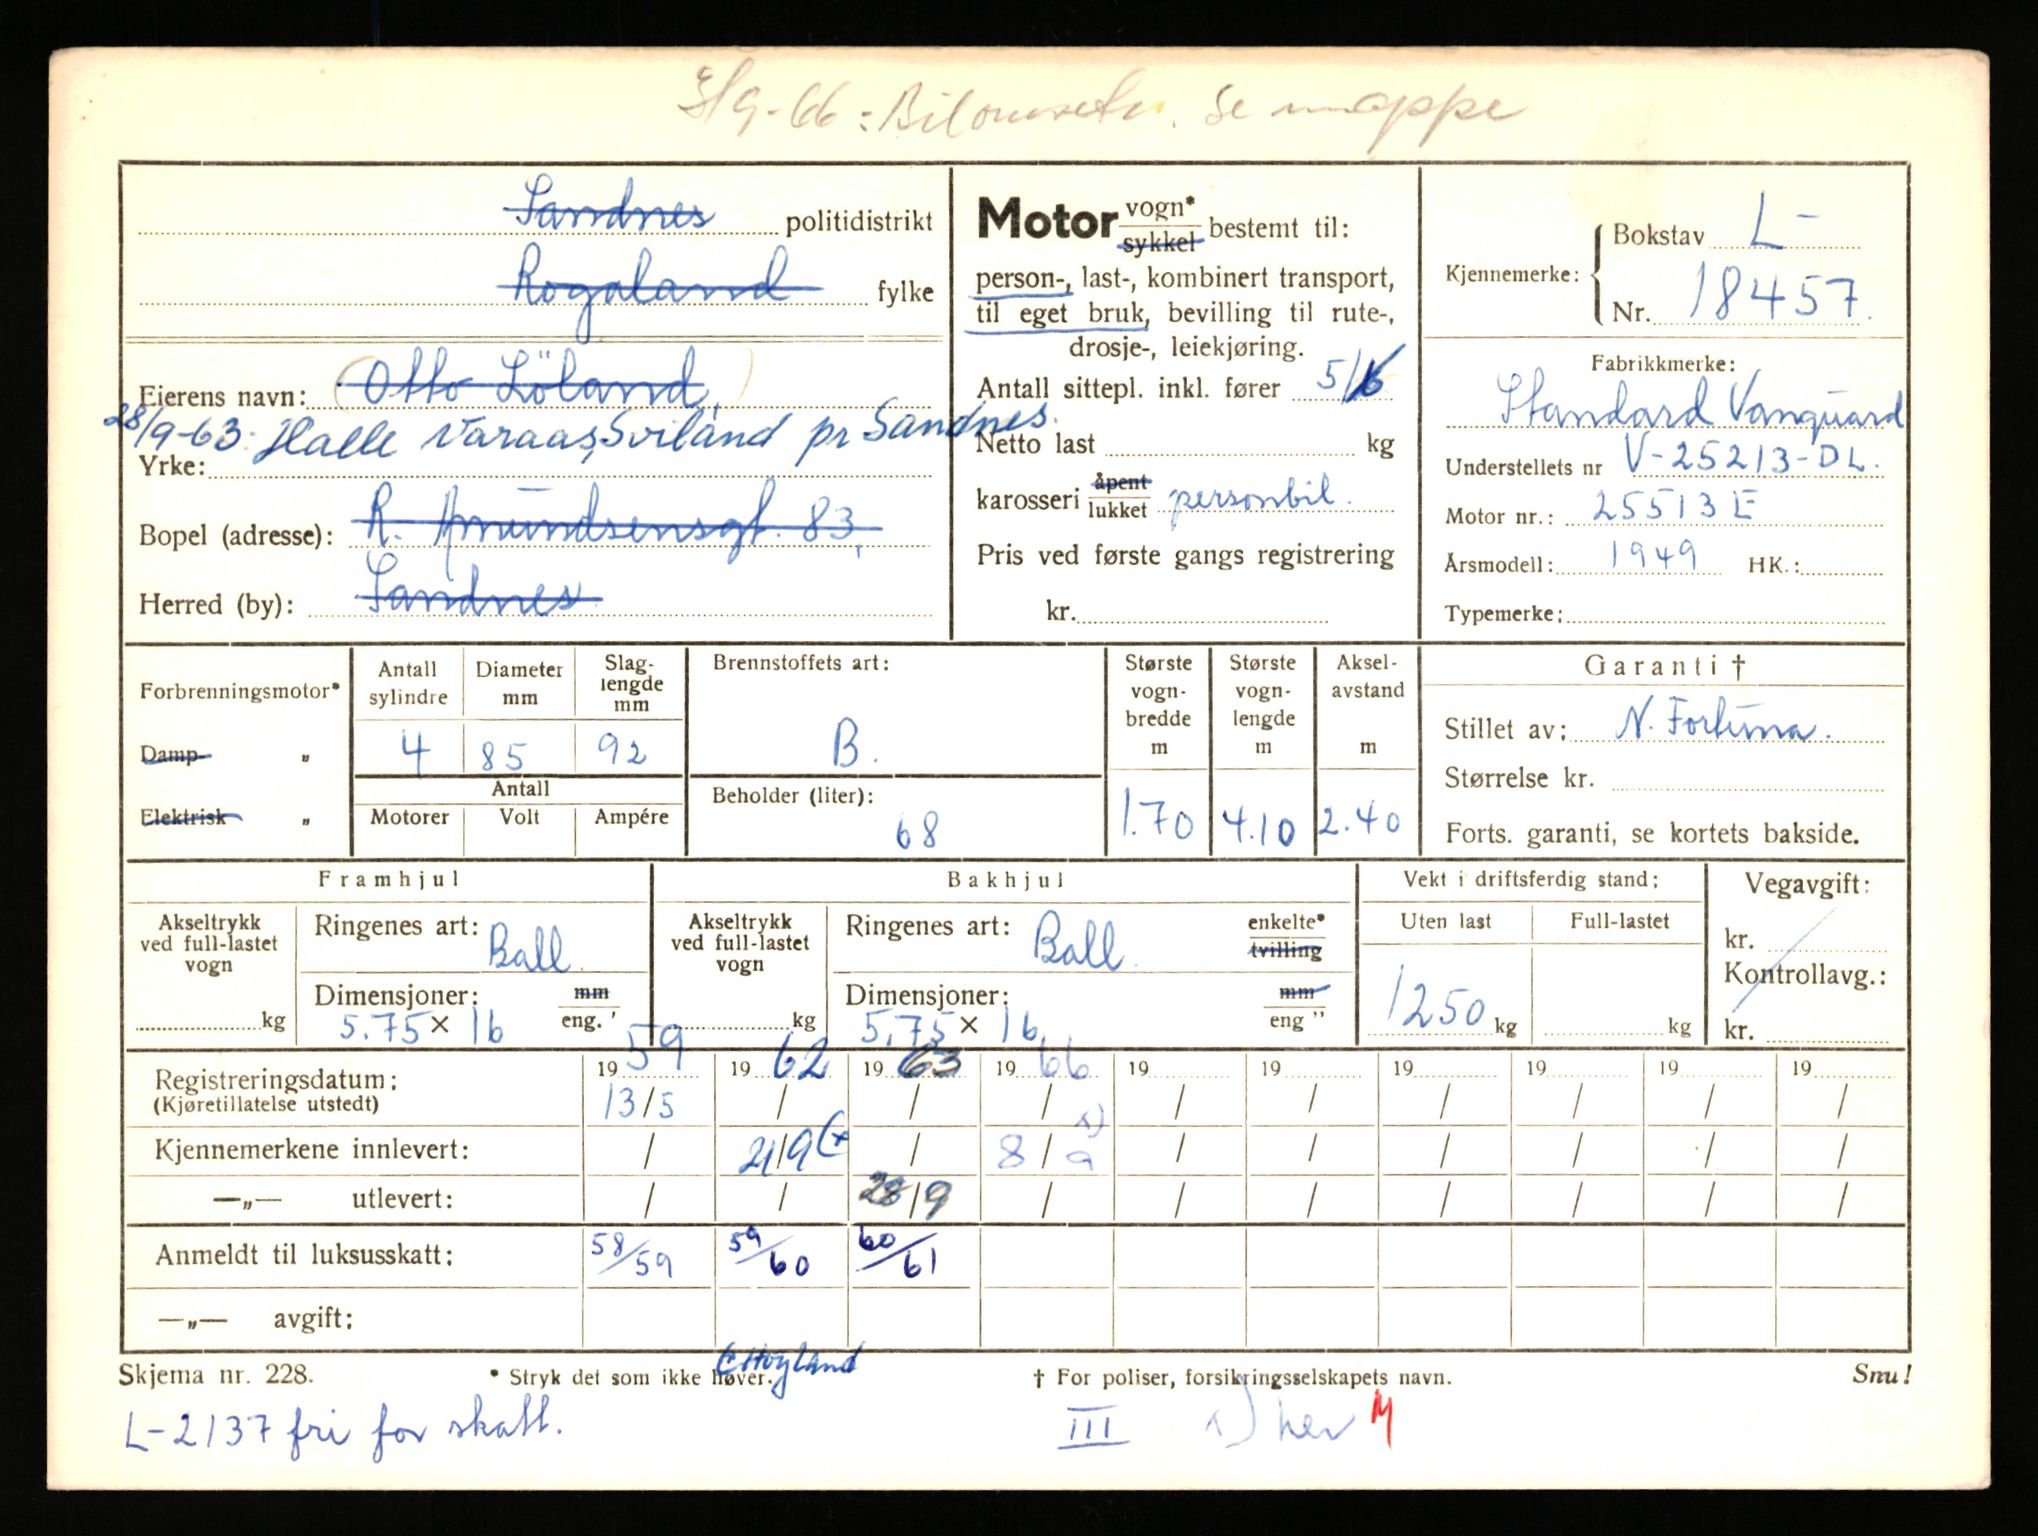 8/9-66: Bilomsetn. Se mappe
Sandnes politidistrikt
Rogaland fylke
Eierens navn: (Otto Löland,)
28/9-63: Halle Varaas, Sviland pr Sandnes.
Yrke:
Bopel (adresse): R. Amundsensgt. 83,
Herred (by): Sandnes
Motor vogn* / sykkel bestemt til:
person-, last-, kombinert transport,
til eget bruk, bevilling til rute-,
drosje-, leiekjøring.
Antall sittepl. inkl. fører 5/6
Netto last kg
karosseri åpent / lukket personbil.
Pris ved første gangs registrering
kr.
Kjennemerke: Bokstav L-
Nr. 18457.
Fabrikkmerke:
Standard Vanguard
Understellets nr V-25213-DL.
Motor nr.: 25513 E
Årsmodell: 1949 HK.:
Typemerke:
Forbrenningsmotor*
Damp- „
Elektrisk „
Antall sylindre 4
Diameter mm 85
Slag-lengde mm 92
Antall
Motorer Volt Ampére
Brennstoffets art:
B.
Beholder (liter):
68
Største vogn-bredde m 1.70
Største vogn-lengde m 4.10
Aksel-avstand m 2.40
Garanti †
Stillet av: N. Fortuna.
Størrelse kr.
Forts. garanti, se kortets bakside.
Framhjul
Akseltrykk ved full-lastet vogn kg
Ringenes art: Ball.
Dimensjoner: mm / eng. '
5.75 × 16
Bakhjul
Akseltrykk ved full-lastet vogn kg
Ringenes art: Ball. enkelte* / tvilling
Dimensjoner: mm / eng "
5,75 × 16
Vekt i driftsferdig stand:
Uten last Full-lastet
1250 kg kg
Vegavgift:
kr.
Kontrollavg.:
kr.
Registreringsdatum: 19 59 19 62 19 63 19 66 19 19 19 19 19 19
(Kjøretillatelse utstedt) 13/5 / / / / / / / / /
Kjennemerkene innlevert: / 21/9 (x / 8/9 x) / / / / / /
—„— utlevert: / / 28/9 / / / / / / /
Anmeldt til luksusskatt: 58/59 59/60 60/61
—„— avgift:
Skjema nr. 228. * Stryk det som ikke høver. † For poliser, forsikringsselskapets navn. Snu!
(x Høyland
L-2137 fri for skatt. III x) her M